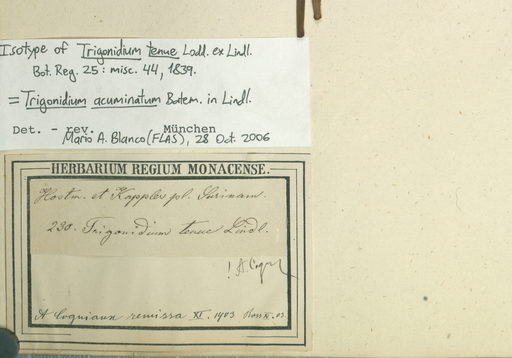 Isotype of Trigonidium tenue Lodd. ex Lindl.
Bot. Reg. 25: misc. 44, 1839.
= Trigonidium acuminatum Batem. in Lindl.
Det. - rev. München
Mario A. Blanco (FLAS), 28 Oct. 2006
HERBARIUM REGIUM MONACENSE.
Hostm. et Kappler pl. Surinam.
230. Trigonidium tenue Lindl.
! A. Cogn
A Cogniaux remissa XI. 1903